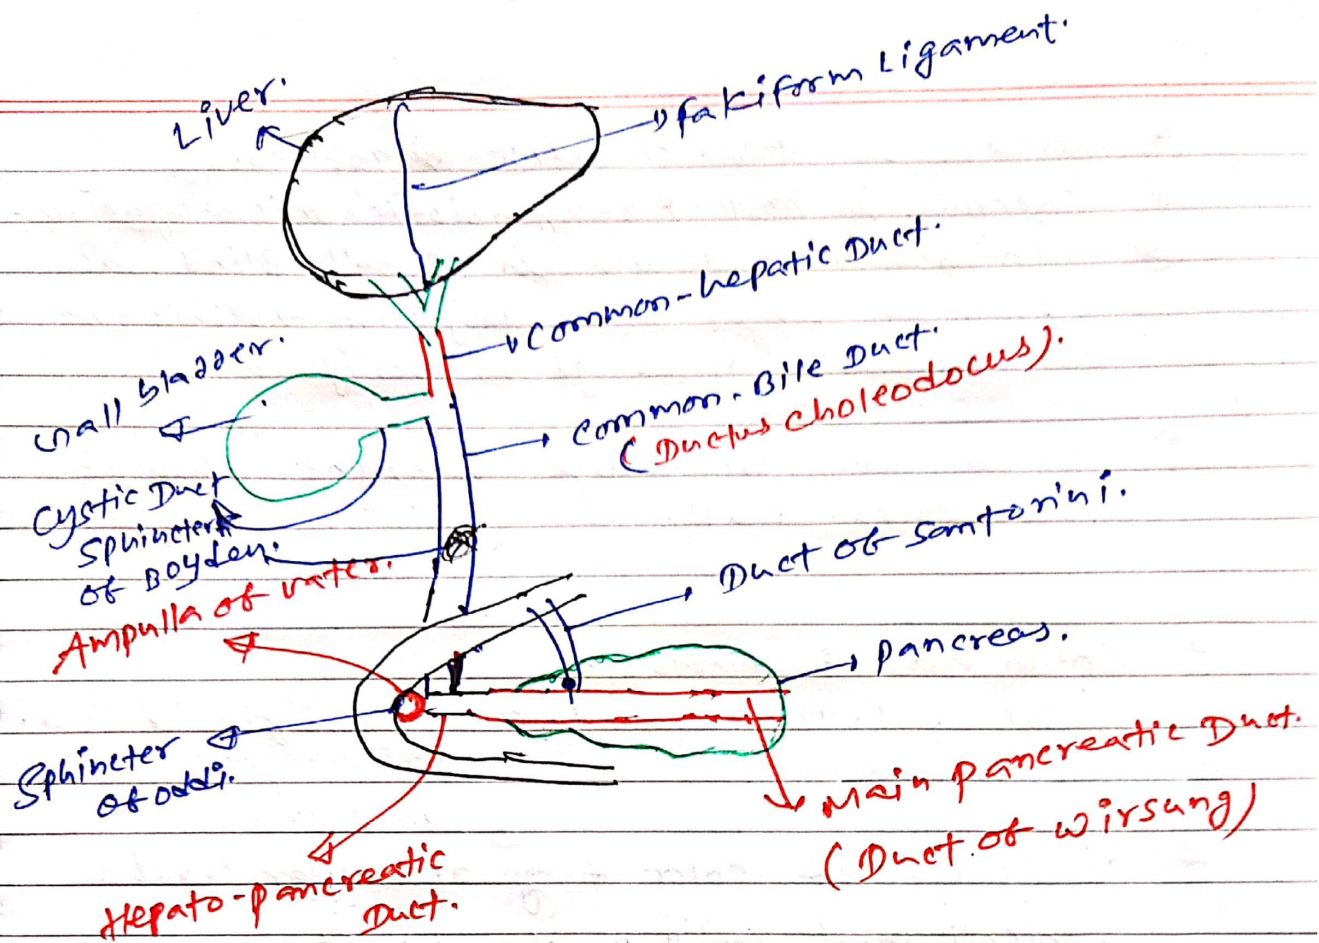 Liver.
Falciform Ligament.
Common-hepatic Duct.
Gall bladder.
Common-Bile Duct.
(Ductus Choleodocus).
Cystic Duct
Sphincter
of Boyden.
Duct of Santorini.
Ampulla of vater.
Pancreas.
Sphincter
of oddi.
Main Pancreatic Duct.
(Duct of Wirsung)
Hepato-pancreatic
Duct.